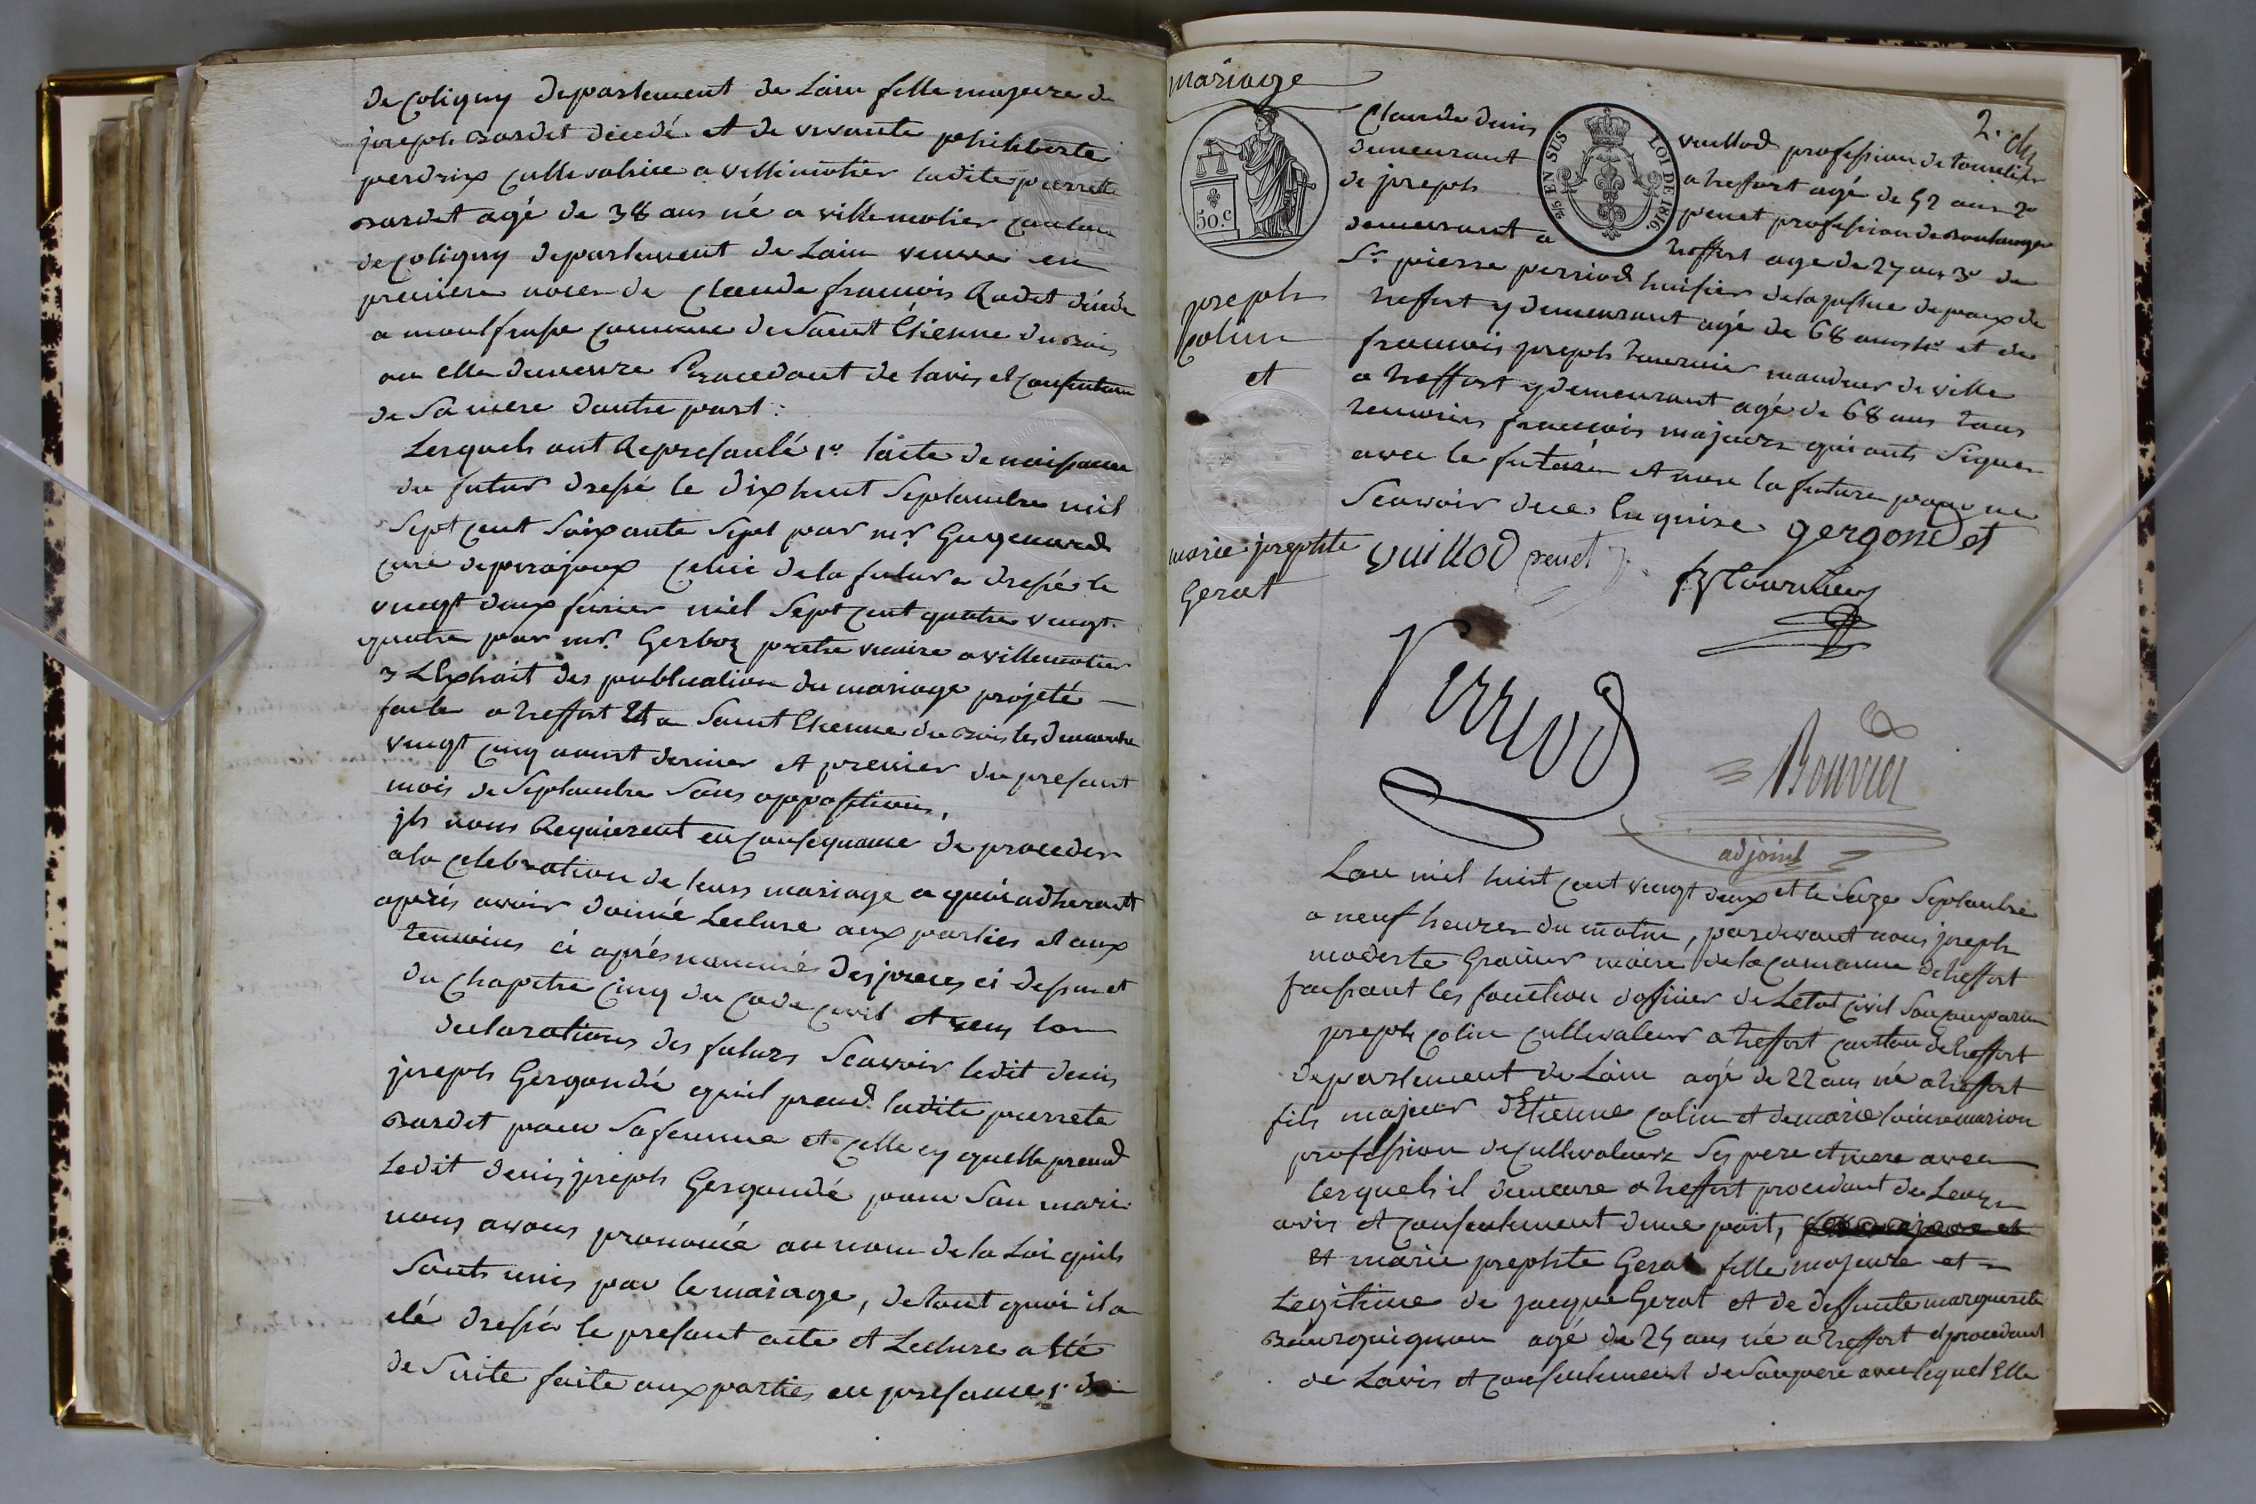 de Coligny departement de Lain fille majeure de
joseph Bardet décedé et de vivante philiberte
perdrix cultivatrice a villemotier ladite pierrette
Bardet agé de 38 ans né a villemotier canton
de coligny departement de Lain veuve en
premiere noces de Claude francois Rodet décédé
a commune de Saint Etienne du Bois
ou elle demeure Procedant de lavis et consentem
de Sa mere dautre part :
Lesquels ont Represanté 1º lacte de naissance
du futur dressé le dixhuit Septambre mil
Sept cent Soixante Sept par mr
curé de pirajoux celui de la future dressé le
vingt deux fevrier mil Sept cent quatre vingt
quatre par mr. Gerboz pretre vicaire a villemotier
3 LExtrait des publication du mariage projeté
faite a treffort Et a Saint Etienne du Bois les dimanche
vingt cinq aoust dernier et premier du presant
mois de Septambre Sans oppositions,
jls nous Requierent en consequance de proceder
a la celebration de leurs mariage a quoi adherant
aprés avoir donné Lecture aux parties et aux
temoins ci aprés nommés des pieces ci dessus et
du Chapitre Cinq du Code Civil et veus
declarations des futurs Scavoir ledit denis
joseph Gergondé quil prend ladite pierrete
Bardet pour Sa femme et celle cy quelle prend
Ledit denis joseph Gergondé pour Son mari
nous avons prononcé au nom de la Loi quils
Sonts unis par le mariage, de tout quoi il a
eté dressé le presant acte et Lecture a Eté
de Suite faite aux parties en presance 1º de
mariage
2.
50.c
2/5 EN SUS
LOI DE 1816.
Claude denis vuillod profession de tourelier
demeurant a treffort agé de 52 ans 2º
de joseph penet profession de Boulanger
demeurant a treffort age de 27 ans 3º de
Sr. pierre perriod huissier de la justice de paix de
treffort y demeurant agé de 68 ans 4º et de
francois joseph tournier mandeur de ville
a treffort y demeurant agé de 68 ans tous
temoins francois majeurs qui onts Signer
avec le futur et non la future pour ne
Scavoir dece enquise gergondet
vuillod penet
fj tournier
Perriod
Bouvier
adjoint
joseph
Colin
et
marie josephte
Gerat
Lan mil huit cent vingt deux et le Seize Septambre
a neuf heures du matin, pardevant nous joseph
modeste Grainer maire de la commune de treffort
faissant les fonction dofficier de Letat civil Son comparu
joseph colin cultivateur a treffort canton de treffort
departement de Lain agé de 22 ans né a treffort
fils majeur dEtienne colin et de marie
profession de cultivateurs Ses pere et mere avec
lesquels il demeure a treffort procedant de Leurs
avis et consentement dune part,
Et marie josephte Gerat fille majeure et
Legitime de jacque Gerat et de deffunte marguerite
Bourguignon agé de 25 ans né a treffort et procedant
de Lavis et consentement de Son pere avec lequel Elle